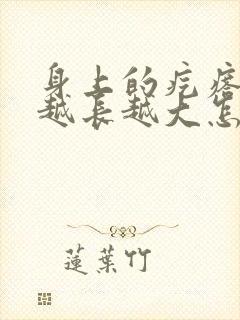 身上的疙瘩
越长越大怎
蓮葉竹